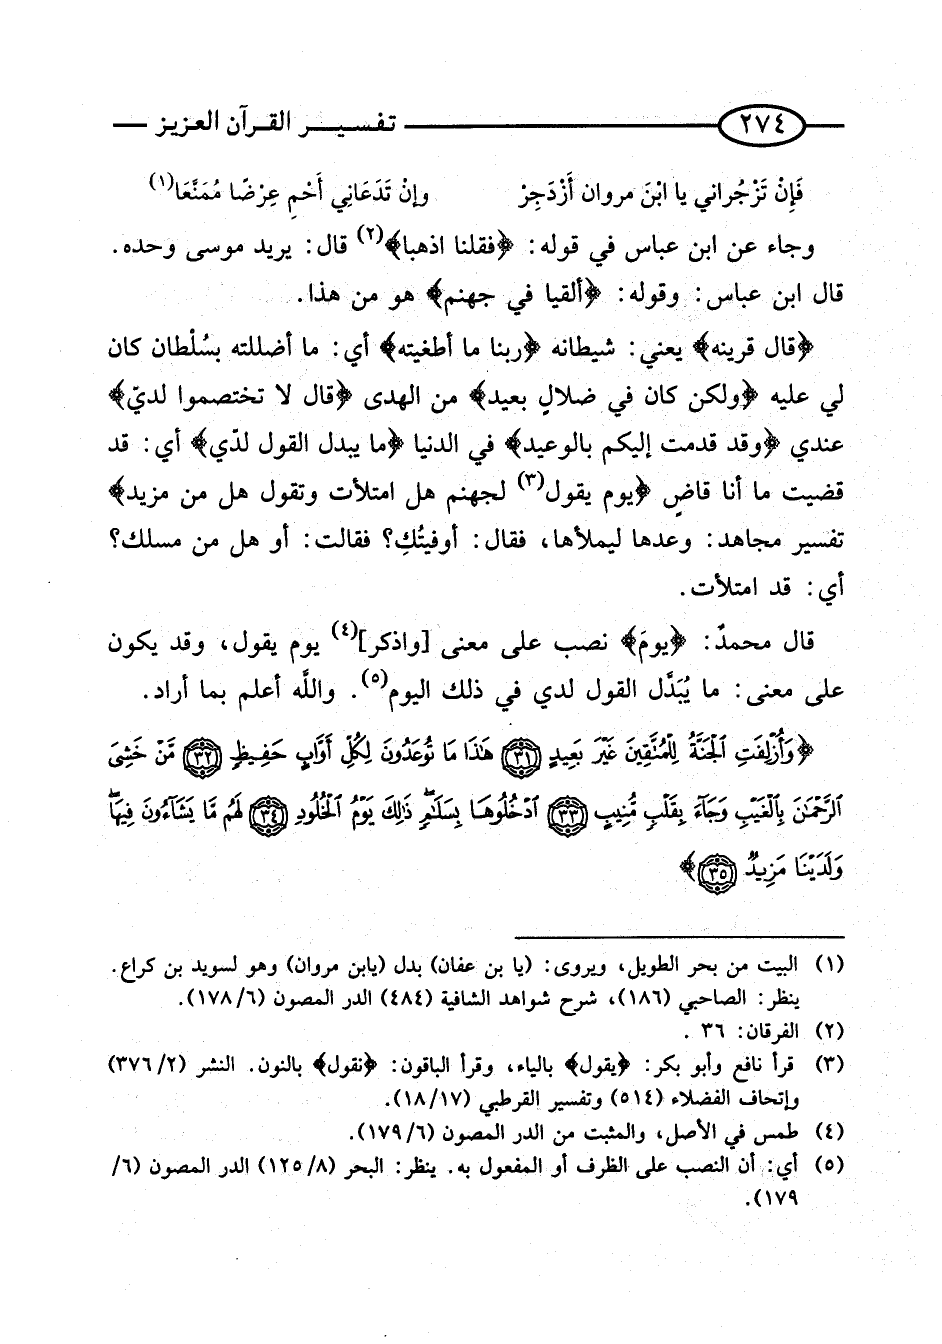 ٢٧٤ تفسير القرآن العزيز
فَإِنْ تَزْجُراني يا ابْنَ مروان أَزْدَجِرْ وإنْ تَدَعَاني أَحْمِ عِرْضًا مُمَنَّعَا(١)
وجاء عن ابن عباس في قوله: ﴿فقلنا اذهبا﴾(٢) قال: يريد موسى وحده.
قال ابن عباس: وقوله: ﴿ألقيا في جهنم﴾ هو من هذا.
﴿قال قرينه﴾ يعني: شيطانه ﴿ربنا ما أطغيته﴾ أي: ما أضللته بسُلْطان كان
لي عليه ﴿ولكن كان في ضلالٍ بعيد﴾ من الهدى ﴿قال لا تختصموا لديّ﴾
عندي ﴿وقد قدمت إليكم بالوعيد﴾ في الدنيا ﴿ما يبدل القول لدّي﴾ أي: قد
قضيت ما أنا قاضٍ ﴿يوم يقول(٣) لجهنم هل امتلأت وتقول هل من مزيد﴾
تفسير مجاهد: وعدها ليملأها، فقال: أوفيتُكِ؟ فقالت: أو هل من مسلك؟
أي: قد امتلأت.
قال محمدٌ: ﴿يومَ﴾ نصب على معنى [واذكر](٤) يوم يقول، وقد يكون
على معنى: ما يُبَدَّل القول لدي في ذلك اليوم(٥). واللَّه أعلم بما أراد.
﴿وَأُزْلِفَتِ الْجَنَّةُ لِلْمُتَّقِينَ غَيْرَ بَعِيدٍ ٣١ هَٰذَا مَا تُوعَدُونَ لِكُلِّ أَوَّابٍ حَفِيظٍ ٣٢ مَّنْ خَشِيَ
الرَّحْمَٰنَ بِالْغَيْبِ وَجَآءَ بِقَلْبٍ مُّنِيبٍ ٣٣ ادْخُلُوهَا بِسَلَٰمٍ ذَٰلِكَ يَوْمُ الْخُلُودِ ٣٤ لَهُم مَّا يَشَآءُونَ فِيهَا
وَلَدَيْنَا مَزِيدٌ ٣٥﴾
(١) البيت من بحر الطويل، ويروى: (يا بن عفان) بدل (يابن مروان) وهو لسويد بن كراع.
ينظر: الصاحبي (١٨٦)، شرح شواهد الشافية (٤٨٤) الدر المصون (٦/ ١٧٨).
(٢) الفرقان: ٣٦ .
(٣) قرأ نافع وأبو بكر: ﴿يقول﴾ بالياء، وقرأ الباقون: ﴿نقول﴾ بالنون. النشر (٢/ ٣٧٦)
وإتحاف الفضلاء (٥١٤) وتفسير القرطبي (١٧/ ١٨).
(٤) طمس في الأصل، والمثبت من الدر المصون (٦/ ١٧٩).
(٥) أي: أن النصب على الظرف أو المفعول به. ينظر: البحر (٨/ ١٢٥) الدر المصون (٦/
١٧٩).